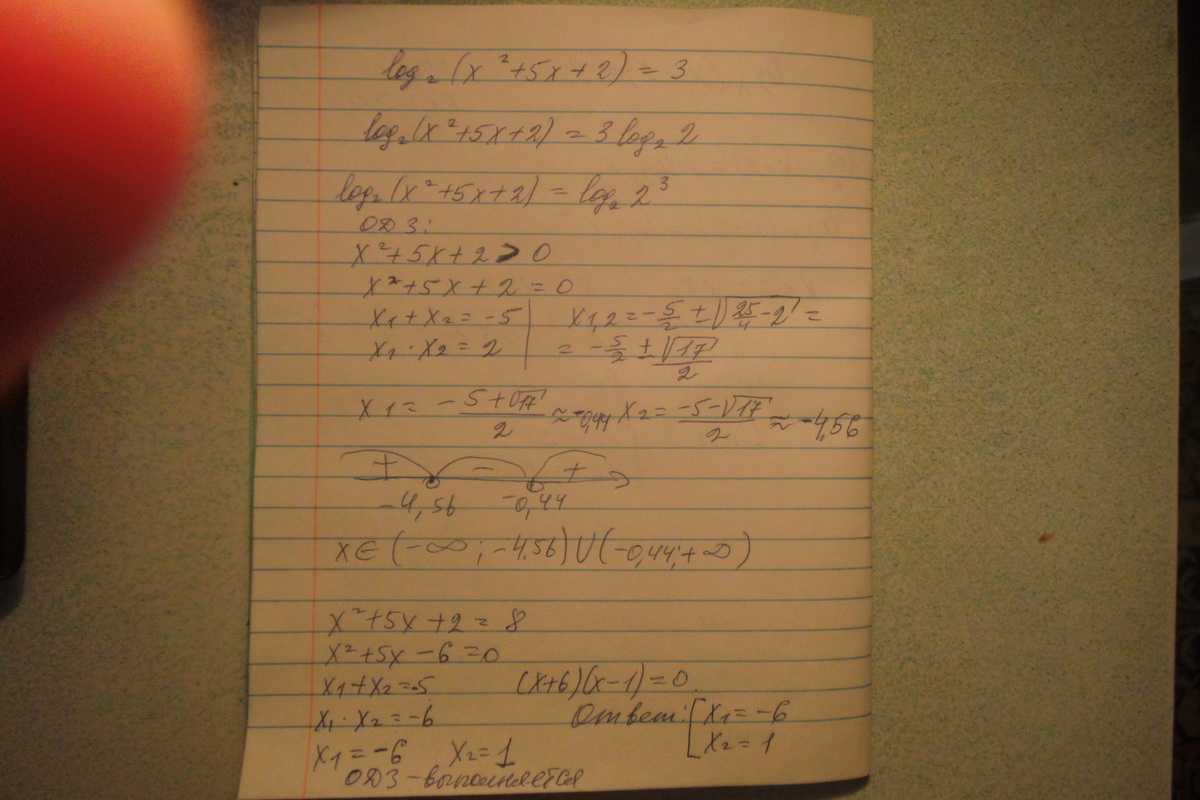 log₂(x²+5x+2) = 3
log₂(x²+5x+2) = 3 log₂ 2
log₂(x²+5x+2) = log₂ 2³
ОДЗ:
x²+5x+2 > 0
x²+5x+2 = 0
x₁+x₂ = -5 | x₁,₂ = -5/2 ± √(25/4 - 2) =
x₁·x₂ = 2 | = -5/2 ± √17/2
x₁ = -(5+√17)/2 ≈ -0,44 x₂ = (-5-√17)/2 ≈ -4,56
+ - +
-4,56 -0,44
x∈(-∞; -4.56)∪(-0,44;+∞)
x²+5x+2 = 8
x²+5x-6=0
x₁+x₂=-5 (x+6)(x-1)=0.
x₁·x₂ = -6 Ответ: [x₁ = -6
x₁ = -6 x₂ = 1 x₂ = 1
ОДЗ-выполняется